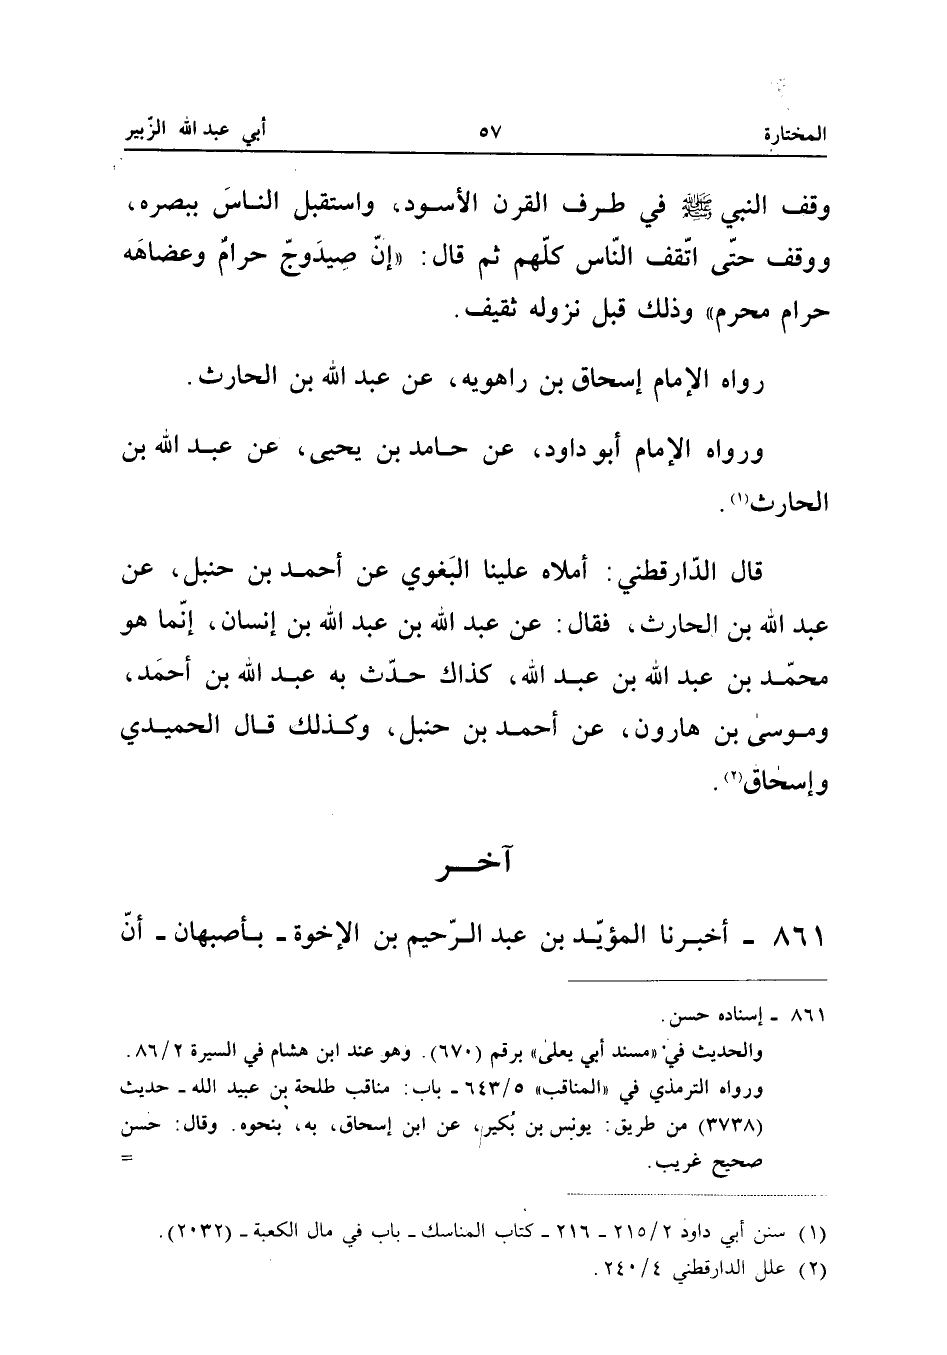 المختارة ٥٧ أبي عبد الله الزّبير
وقف النبي ﷺ في طرف القرن الأسود، واستقبل الناسَ ببصره،
ووقف حتّى اتّقف النّاس كلّهم ثم قال: «إنّ صِيدَوجّ حرامٌ وعضاهَه
حرام محرم» وذلك قبل نزوله ثقيف.
رواه الإمام إسحاق بن راهويه، عن عبد الله بن الحارث.
ورواه الإمام أبو داود، عن حامد بن يحيى، عن عبد الله بن
الحارث(١).
قال الدّارقطني: أملاه علينا البَغوي عن أحمد بن حنبل، عن
عبد الله بن الحارث، فقال: عن عبد الله بن عبد الله بن إنسان، إنّما هو
محمّد بن عبد الله بن عبد الله، كذاك حدّث به عبد الله بن أحمَد،
وموسىٰ بن هارون، عن أحمد بن حنبل، وكذلك قال الحميدي
وإسحٰاق(٢).
آخر
٨٦١ - أخبرنا المؤيّد بن عبد الرّحيم بن الإخوة - بأصبهان - أنّ
٨٦١ - إسناده حسن.
والحديث في «مسند أبي يعلى» برقم (٦٧٠). وهو عند ابن هشام في السيرة ٨٦/٢.
ورواه الترمذي في «المناقب» ٦٤٣/٥ - باب: مناقب طلحة بن عبيد الله - حديث
(٣٧٣٨) من طريق: يونس بن بُكير، عن ابن إسحاق، به، بنحوه. وقال: حسن
صحيح غريب. =
(١) سنن أبي داود ٢١٥/٢ - ٢١٦ - كتاب المناسك - باب في مال الكعبة - (٢٠٣٢).
(٢) علل الدارقطني ٢٤٠/٤.